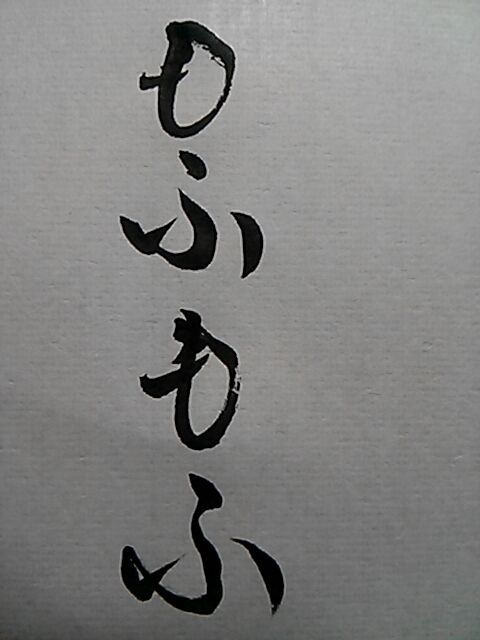 もふもふ